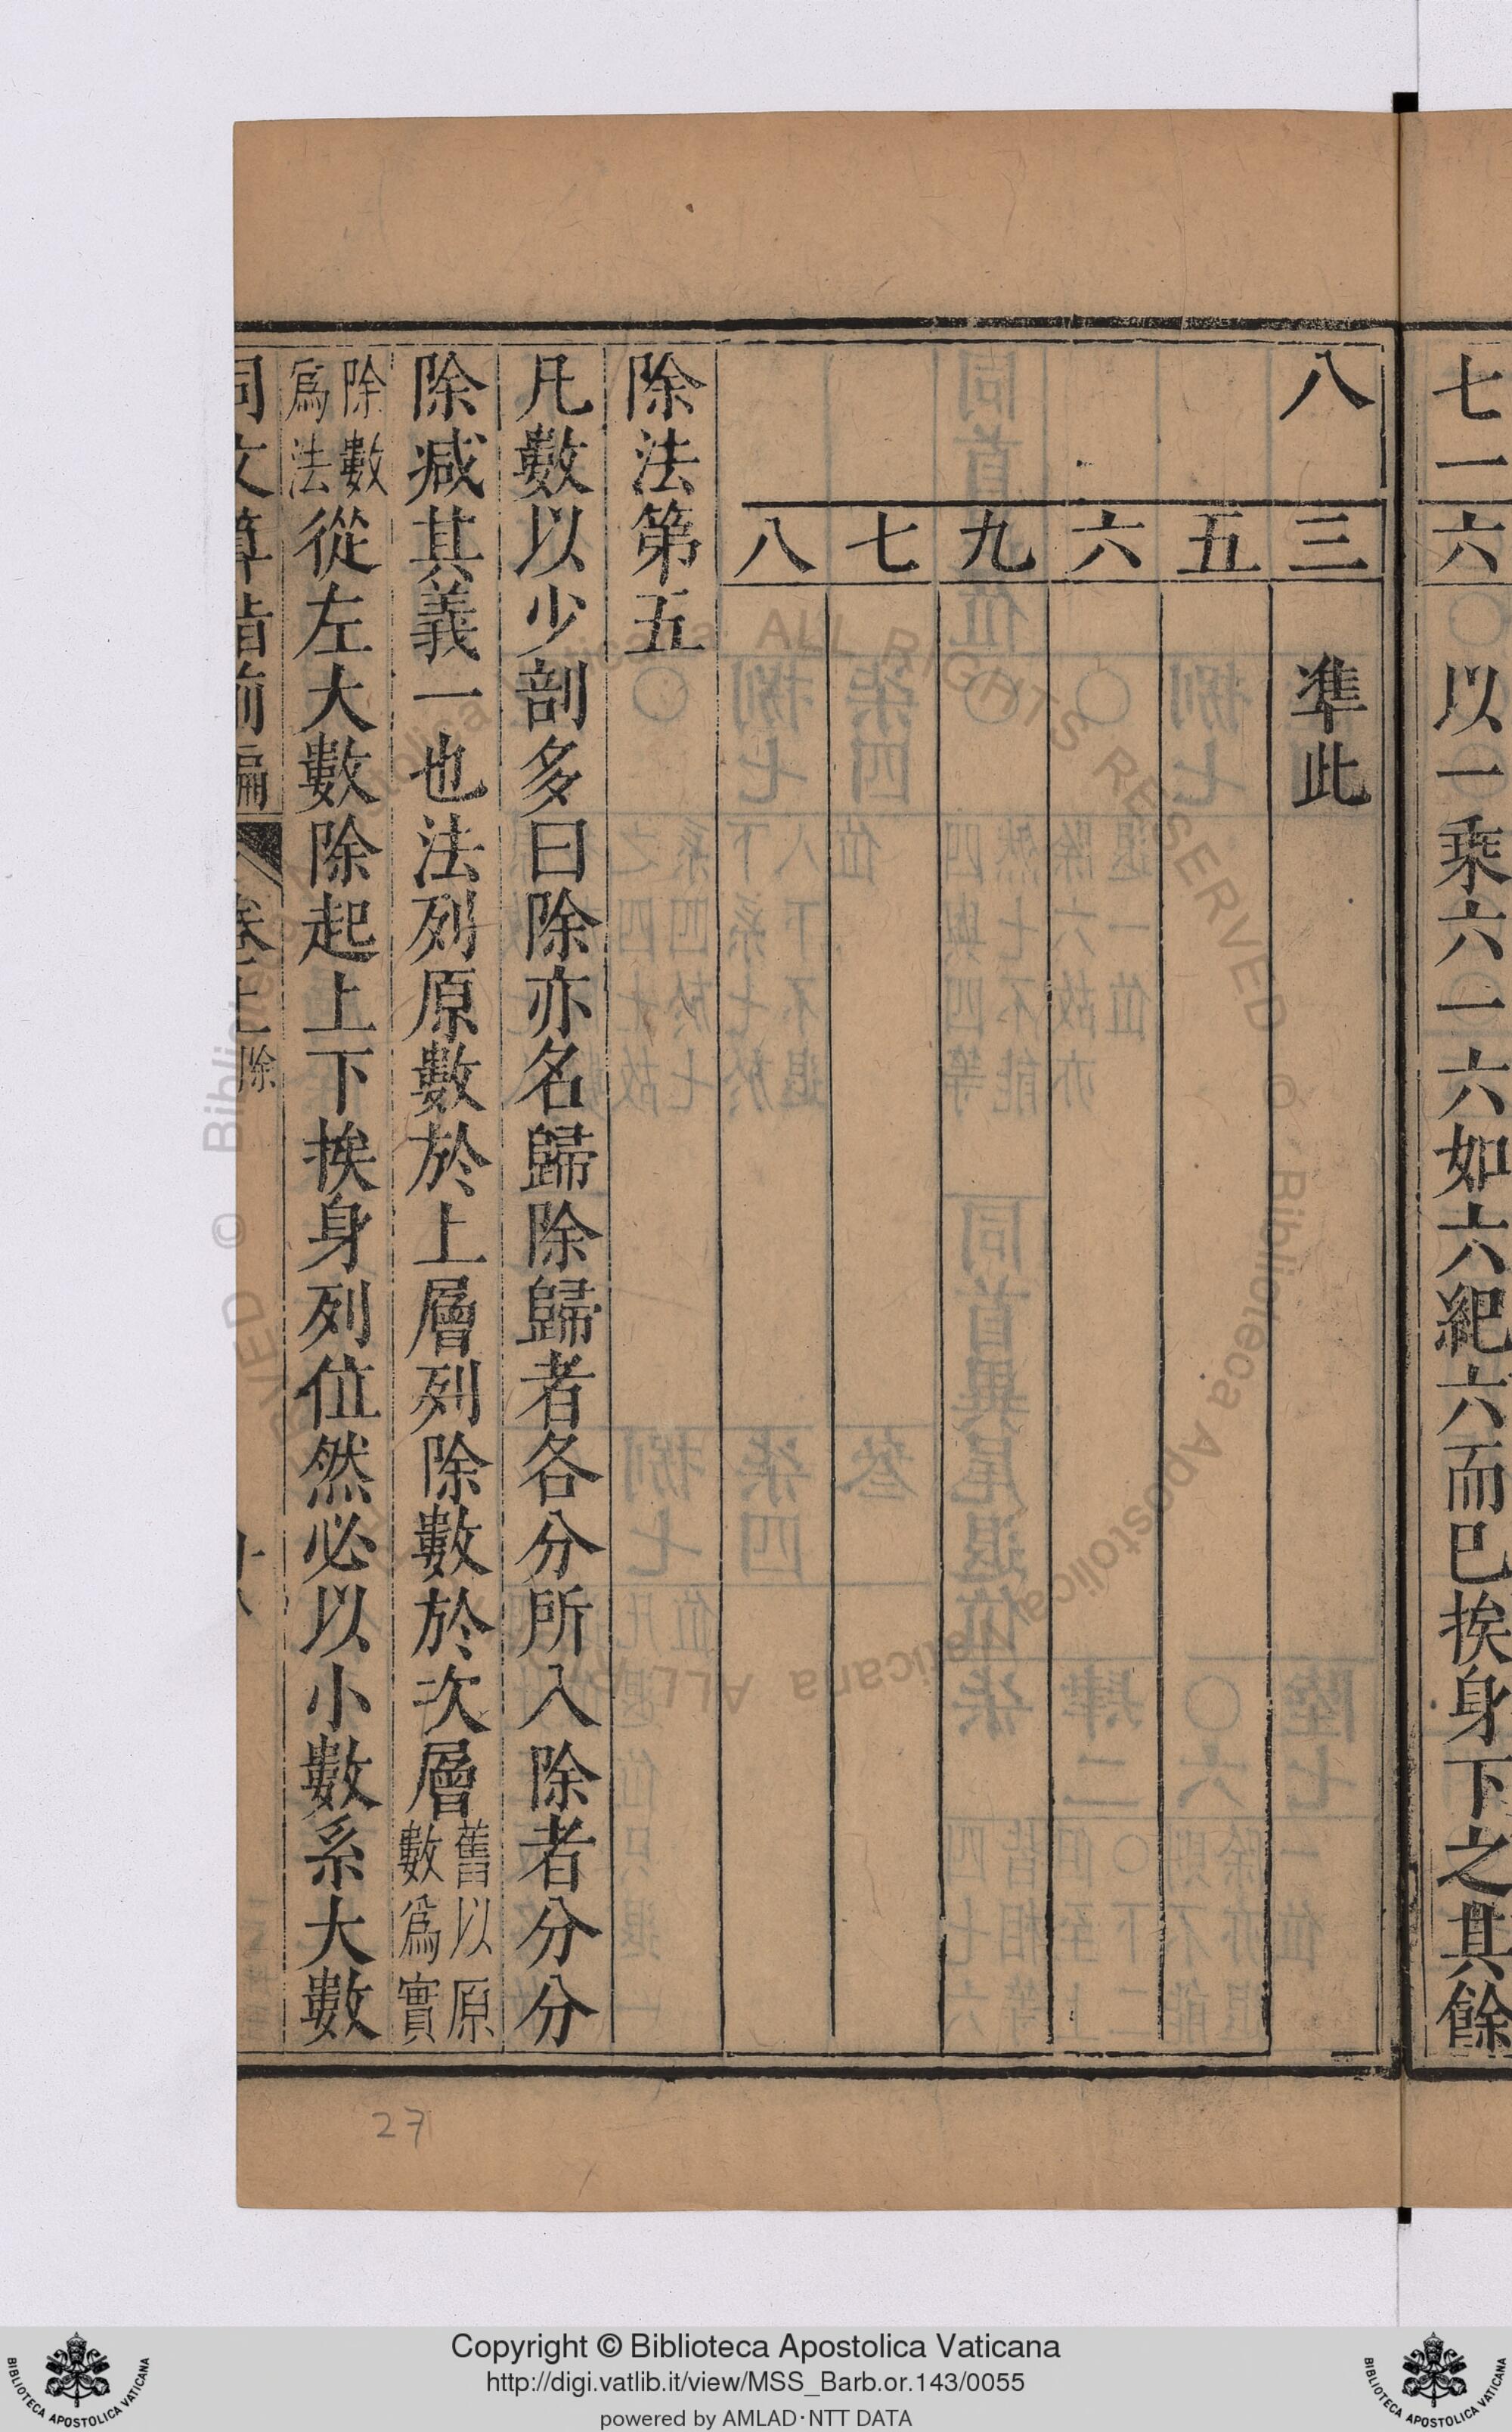 七一六　以一乘六一六如六紀六而已挨身下之其餘
八三　準此
五
六
九
七
八
除法第五
凡數以少剖多曰除亦名歸除歸者各分所入除者分分
除減其義一也法列原數於上層列除數於次層舊以原數爲實
除數爲法從左大數除起上下挨身列位然必以小數系大數
同文算指前編　卷上　除　十八
27
Copyright © Biblioteca Apostolica Vaticana
http://digi.vatlib.it/view/MSS_Barb.or.143/0055
powered by AMLAD·NTT DATA
BIBLIOTECA APOSTOLICA VATICANA
BIBLIOTECA APOSTOLICA VATICANA